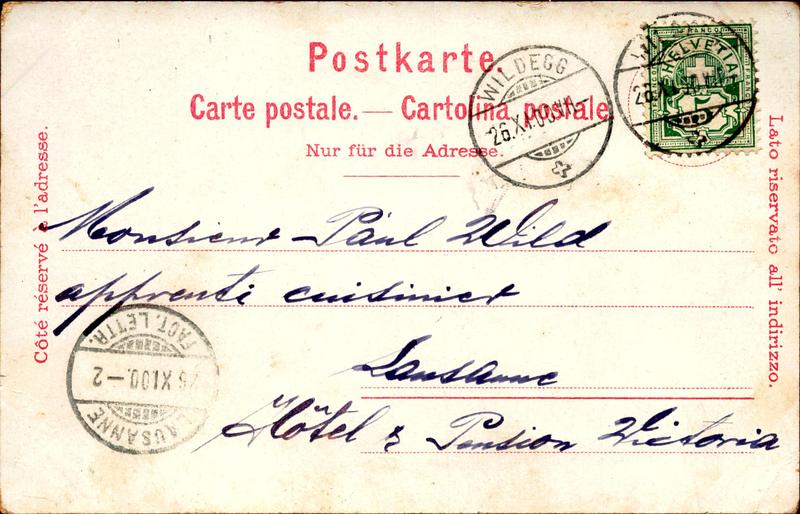 Postkarte.
Carte postale. — Cartolina postale
Nur für die Adresse.
Côté réservé à l'adresse.
Lato riservato all' indirizzo.
WILDEGG
26.XI.00.VII
FRANCO
HELVETIA
5
Monsieur Paul Wild
apprenti cuisinier
Lausanne
Hôtel & Pension Victoria
LAUSANNE
26.XI.00.-2
FACT. LETTR.